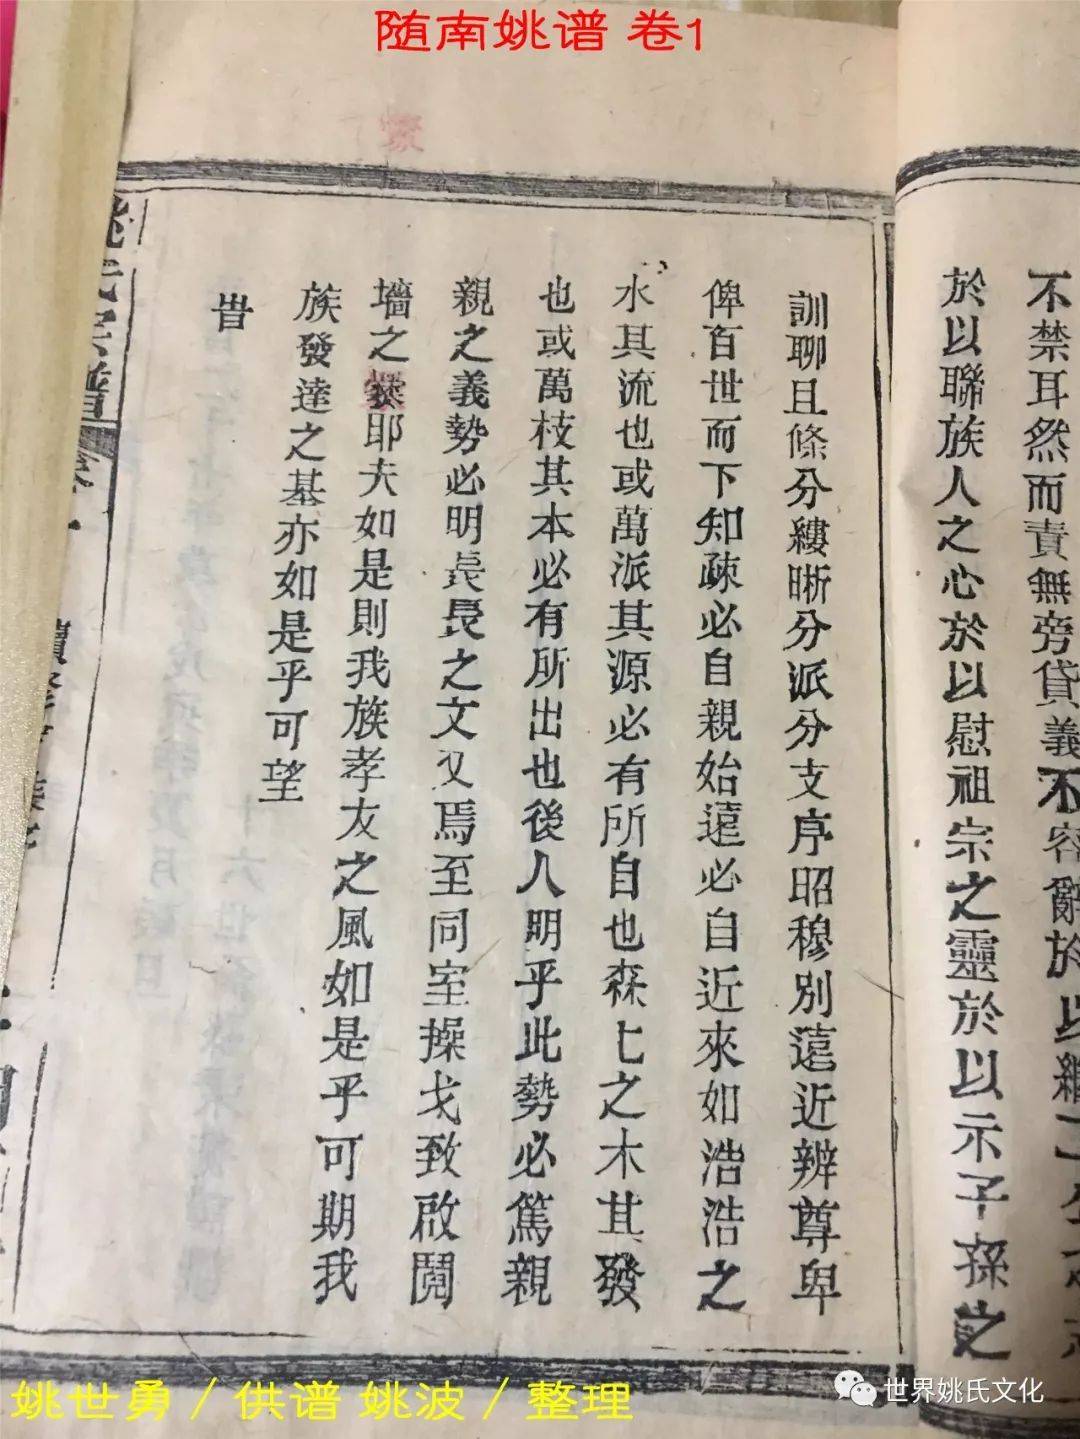 随南姚谱 卷1
不禁耳然而責無旁貸義不容辭於以繼
於以聯族人之心於以慰祖宗之靈於以示子孫之
訓聊且條分縷晰分派分支序昭穆別遠近辨尊卑
俾百世而下知疎必自親始遠必自近來如浩浩之
水其流也或萬派其源必有所自也森七之木其發
也或萬枝其本必有所出也後人明乎此勢必篤親
親之義勢必明長長之文又焉至同室操戈致啟鬩
墻之釁耶夫如是則我族孝友之風如是乎可期我
族發達之基亦如是乎可望
旹
姚氏宗譜
姚世勇/供谱 姚波/整理
世界姚氏文化